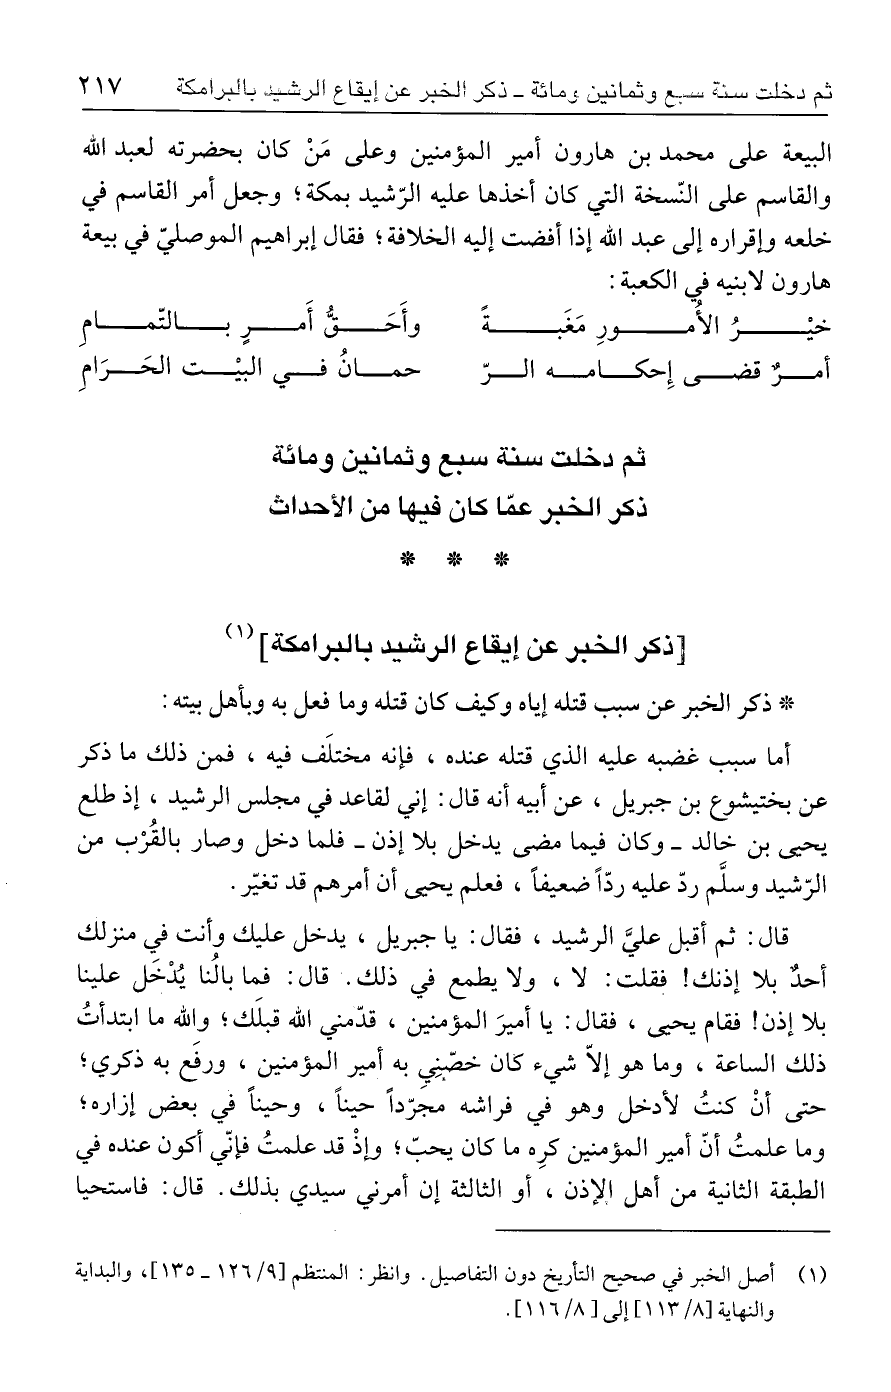 ثم دخلت سنة سبع وثمانين ومائة ـ ذكر الخبر عن إيقاع الرشيد بالبرامكة ٢١٧
البيعة على محمد بن هارون أمير المؤمنين وعلى مَنْ كان بحضرته لعبد الله
والقاسم على النّسخة التي كان أخذها عليه الرّشيد بمكة؛ وجعل أمر القاسم في
خلعه وإقراره إلى عبد الله إذا أفضت إليه الخلافة؛ فقال إبراهيم الموصليّ في بيعة
هارون لابنيه في الكعبة:
خيْـرُ الأُمـورِ مَغَبـةً وأَحَـقُّ أَمـرٍ بـالتّمـامِ
أمـرٌ قضـى إحكـامـه الـرّ حمـانُ فـي البيْـت الحَـرَامِ
ثم دخلت سنة سبع وثمانين ومائة
ذكر الخبر عمّا كان فيها من الأحداث
* * *
[ذكر الخبر عن إيقاع الرشيد بالبرامكة](١)
* ذكر الخبر عن سبب قتله إياه وكيف كان قتله وما فعل به وبأهل بيته:
أما سبب غضبه عليه الذي قتله عنده، فإنه مختلَف فيه، فمن ذلك ما ذكر
عن بختيشوع بن جبريل، عن أبيه أنه قال: إني لقاعد في مجلس الرشيد، إذ طلع
يحيى بن خالد ـ وكان فيما مضى يدخل بلا إذن ـ فلما دخل وصار بالقُرْب من
الرّشيد وسلَّم ردّ عليه ردّاً ضعيفاً، فعلم يحيى أن أمرهم قد تغيّر.
قال: ثم أقبل عليَّ الرشيد، فقال: يا جبريل، يدخل عليك وأنت في منزلك
أحدٌ بلا إذنك! فقلت: لا، ولا يطمع في ذلك. قال: فما بالُنا يُدْخَل علينا
بلا إذن! فقام يحيى، فقال: يا أميرَ المؤمنين، قدّمني الله قبلَك؛ والله ما ابتدأتُ
ذلك الساعة، وما هو إلاّ شيء كان خصّنِي به أمير المؤمنين، ورفَع به ذكري؛
حتى أنْ كنتُ لأدخل وهو في فراشه مجرّداً حيناً، وحيناً في بعض إزاره؛
وما علمتُ أنّ أمير المؤمنين كرِه ما كان يحبّ؛ وإذْ قد علمتُ فإنّي أكون عنده في
الطبقة الثانية من أهل الإذن، أو الثالثة إن أمرني سيدي بذلك. قال: فاستحيا
(١) أصل الخبر في صحيح التأريخ دون التفاصيل. وانظر: المنتظم [٩/ ١٢٦ ـ ١٣٥]، والبداية
والنهاية [٨/ ١١٣] إلى [٨/ ١١٦].